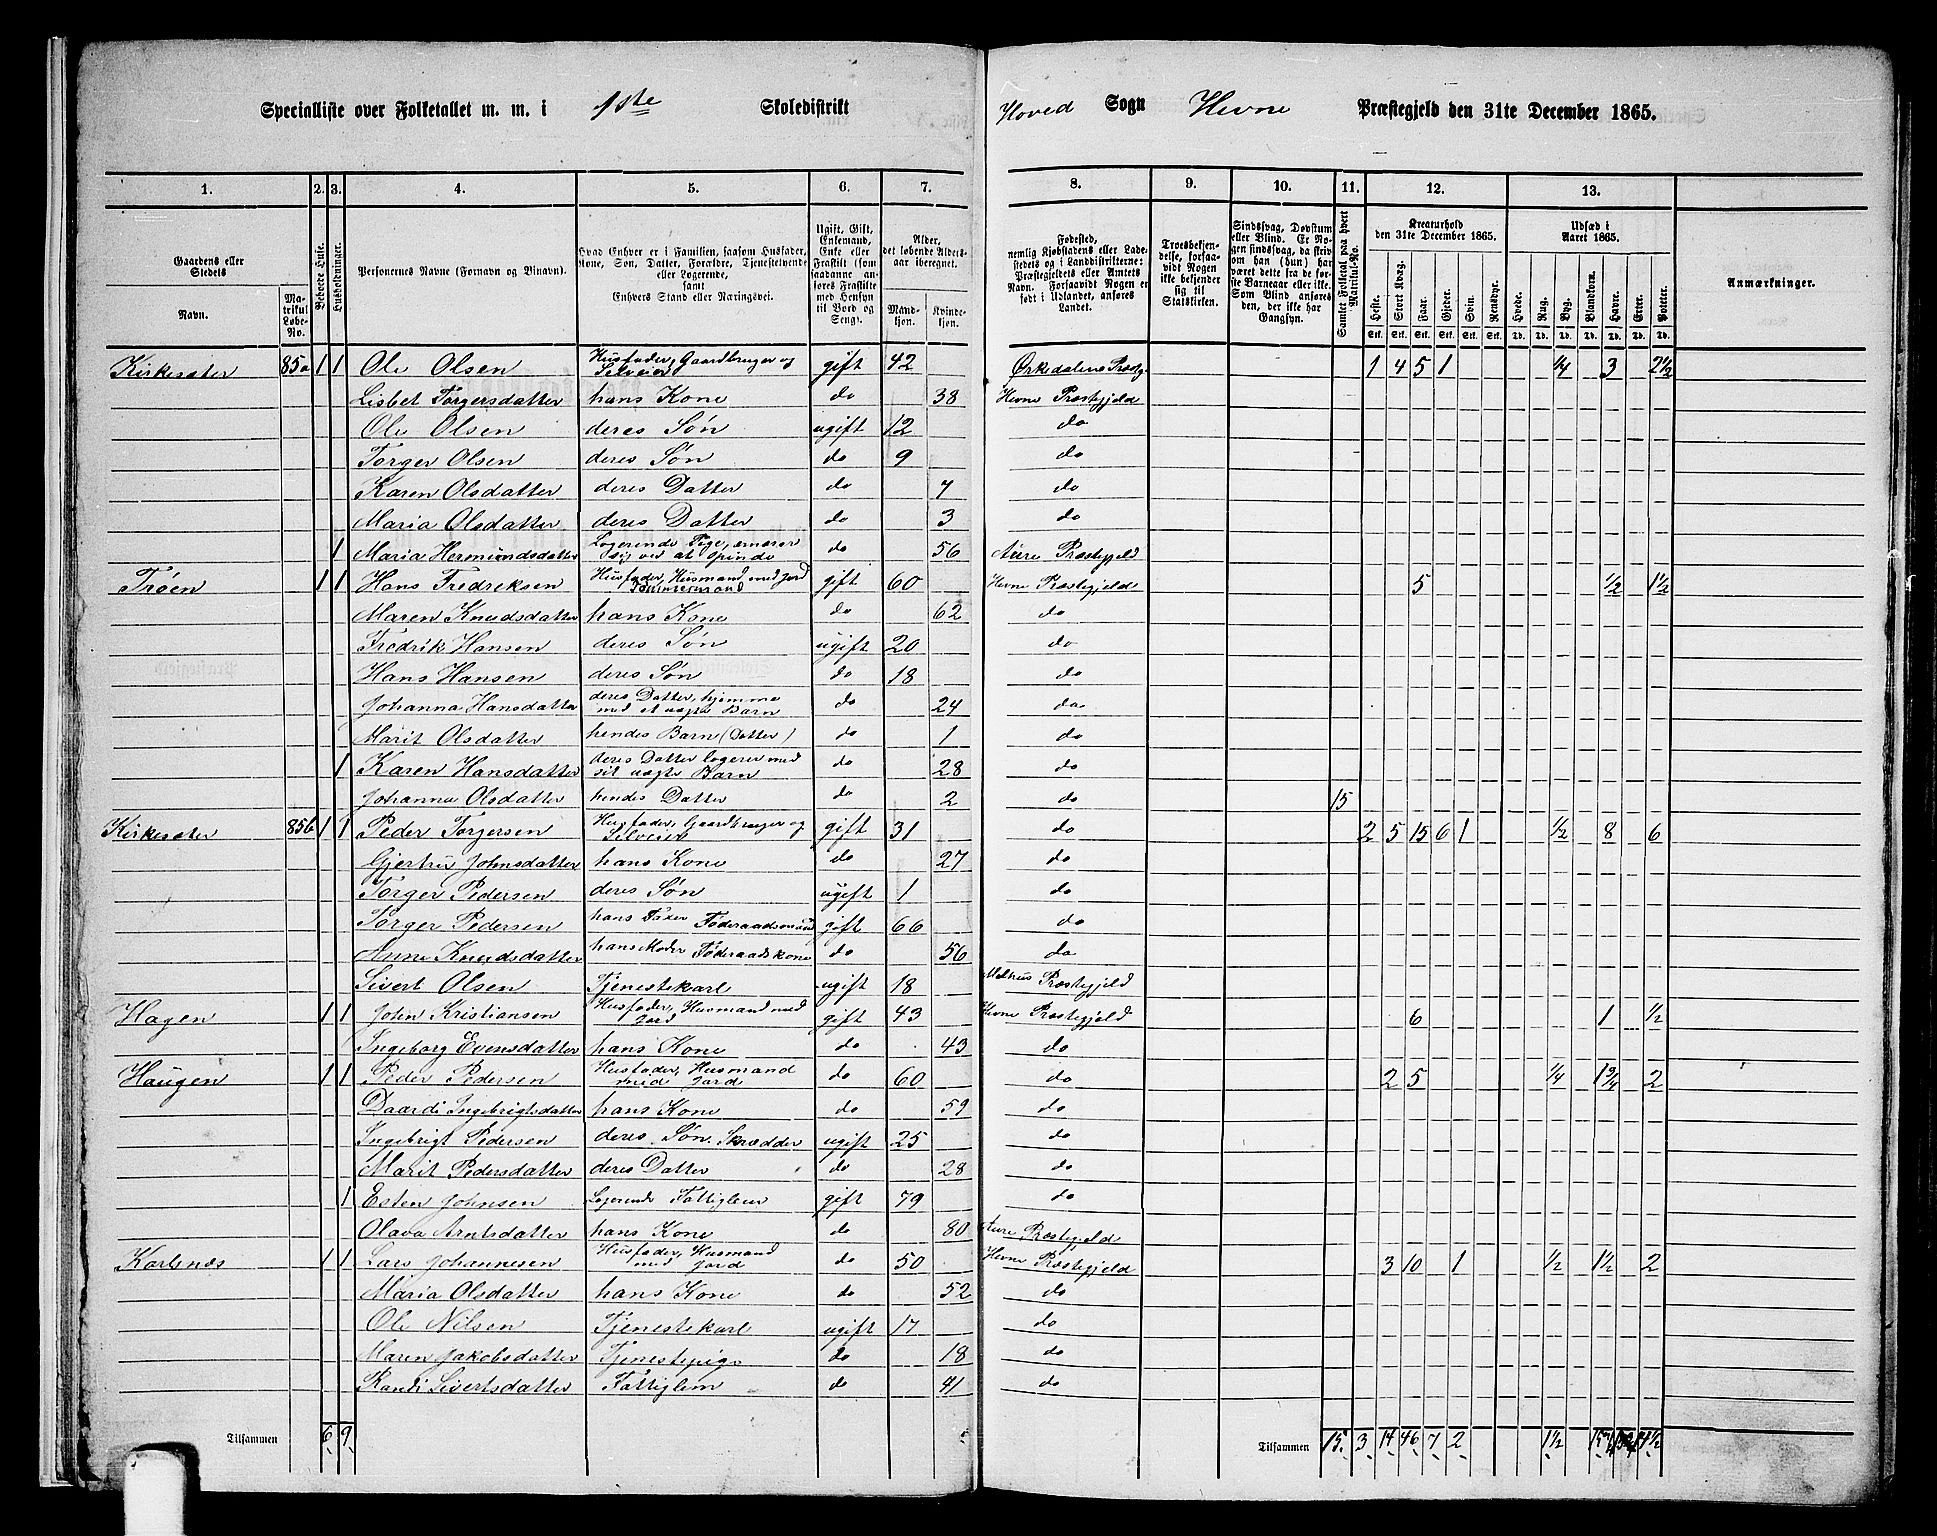 Specialliste over Folketallet m. m. i 1ste Skoledistrikt Hoved Sogn Hevne Præstegjeld den 31te December 1865.
1. 2. 3. 4. 5. 6. 7. 8. 9. 10. 11. 12. 13.
Gaardens eller Stedets
Navn.
Matrikul Løbe-No.
Beboede Huse.
Husholdninger.
Personernes Navne (Fornavn og Binavn).
Hvad Enhver er i Familien, saasom Husfader, Kone, Søn, Datter, Forældre, Tjenestetyende eller Logerende, samt Enhvers Stand eller Næringsvei.
Ugift, Gift, Enkemand, Enke eller Fraskilt (saadanne anføres Fraskilte med Hensyn til Bord og Seng).
Alder, det løbende Aldersaar iberegnet.
Mandkjøn. Kvindekjøn.
Fødested, nemlig Kjøbstadens eller Ladestedets og i Landdistrikterne: Præstegjeldets eller Amtets Navn. Forsaavidt Nogen er født i Udlandet, anføres Landet.
Troesbekjendelse, forsaavidt Nogen ikke bekjender sig til Statskirken.
Sindssvag, Døvstum eller Blind. Er Nogen sindssvag, da skrives om han (hun) har været dette fra de første Barneaar eller ikke. Som Blind anføres den, der ikke har Gangsyn.
Samlet Folketal paa hvert Matrikul-No.
Kreaturhold den 31te December 1865.
Heste. Stort Kvæg. Faar. Gjeder. Svin. Rensdyr.
Udsæd i Aaret 1865.
Hvede. Rug. Byg. Blandkorn. Havre. Erter. Poteter.
Anmærkninger.
Kirkesæter 85a 1 1 Ole Olsen Husfader, Gaardbruger og Selveier gift 42 Ørkedalens Præstg. 1 4 5 1 1/4 3 2 1/2
Lisbet Torgersdatter hans Kone do 38 Hevne Præstegjeld
Ole Olsen deres Søn ugift 12 do
Torger Olsen deres Søn do 9 do
Karen Olsdatter deres Datter do 7 do
Maria Olsdatter deres Datter do 3 do
1 Maria Hermundsdatter Logerende Pige, ernærer sig ved at spinde do 56 Aure Præstegjeld
Trøen 1 1 Hans Fredriksen Husfader, Husmand med Jord Tømmermand gift 60 Hevne Præstegjeld 5 1/2 1 1/2
Maren Knudsdatter hans Kone do 62 do
Fredrik Hansen deres Søn ugift 20 do
Hans Hansen deres Søn do 18 do
Johanna Hansdatter deres Datter, hjemme med et uægte Barn do 24 do
Marit Olsdatter hendes Barn (Datter) do 1 do
1 Karen Hansdatter deres Datter logerer med sit uægte Barn do 28 do
Johanna Olsdatter hendes Datter do 2 do 15
Kirkesæter 85b 1 1 Peder Torgersen Husfader, Gaardbruger og Selveier gift 31 do 2 5 15 6 1 1/2 8 6
Gjertru Johnsdatter hans Kone do 27 do
Torger Pedersen deres Søn ugift 1 do
Torger Pedersen hans Fader Føderaadsmand gift 66 do
Anne Knudsdatter hans Moder Føderaadskone do 56 do
Sivert Olsen Tjenestekarl ugift 18 Melhus Præstegjeld
Hagen 1 1 John Kristiansen Husfader, Husmand med Jord gift 43 Hevne Præstegjeld 6 1 1/2
Ingeborg Evensdatter hans Kone do 43 do
Haugen 1 1 Peder Pedersen Husfader, Husmand med Jord do 60 do 2 5 1/4 1 3/4 2
Daardi Ingebrigtsdatter hans Kone do 59 do
Ingebrigt Pedersen deres Søn. Skrædder ugift 25 do
Marit Pedersdatter deres Datter do 28 do
1 Esten Johnsen Logerende Fattiglem gift 79 do
Olava Arntsdatter hans Kone do 80 Aure Præstegjeld
Karlsnæs 1 1 Lars Johannesen Husfader, Husmand med Jord do 50 Hevne Præstegjeld 3 10 1 1/2 1 1/2 2
Maria Olsdatter hans Kone do 52 do
Ole Nilsen Tjenestekarl ugift 17 do
Maren Jakobsdatter Tjenestepige do 18 do
Sivertsdatter Fattiglem do 41 do
Tilsammen 6 9 Tilsammen 15 3 14 46 7 2 1 1/2